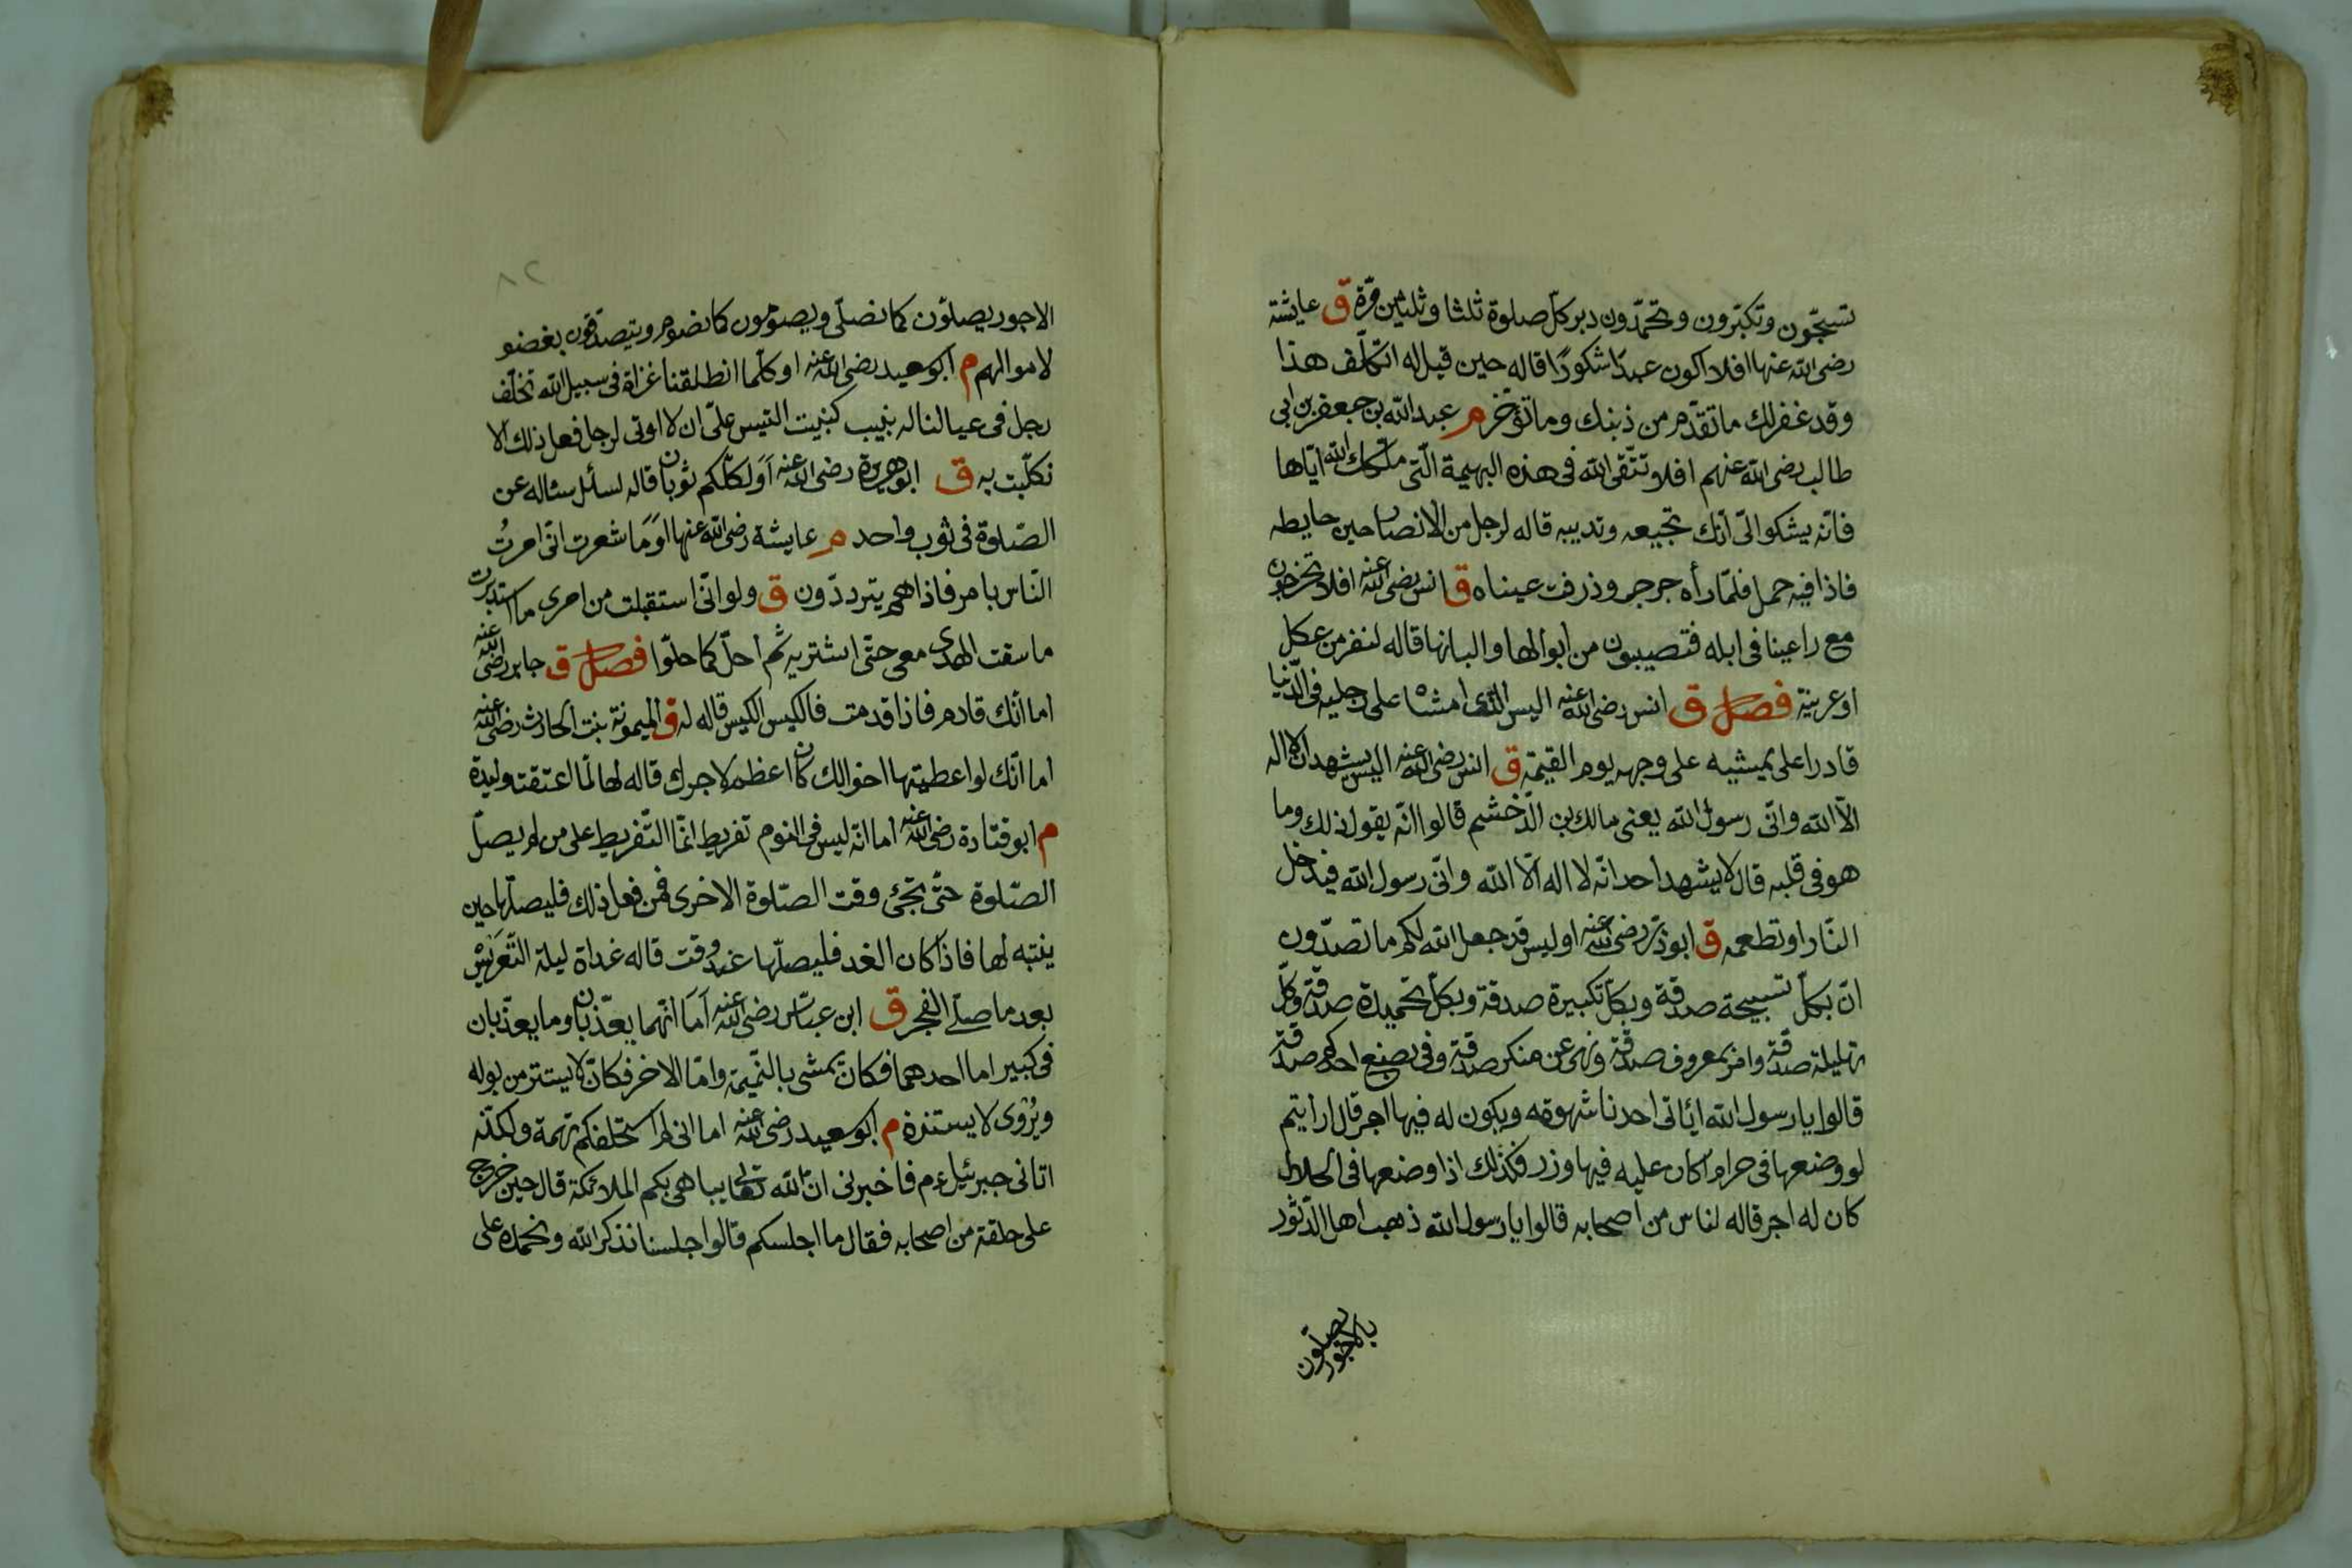 تسبحّون وتكبّرون وتحمّدون دبر كلّ صلوة ثلثا وثلثين مرّة ق عايشة
رضى الله عنها افلا اكون عبدًا شكورًا قاله حين قيل له اتكلّف هذا
وقد غفر لك ما تقدّم من ذنبك وما تؤخّر م عبد الله بن جعفر بن ابى
طالب رضى الله عنهم افلا تتّقى الله فى هذه البهيمة الّتى ملّكك الله ايّاها
فانّه يشكو الىّ انّك تجيعه وتدببه قاله لرجل من الانصار حين حايطه
فاذا فيه جمل فلمّا رأه جرجر وذرفت عيناه ق انس رضى الله عنه افلا تخرجون
مع راعينا فى ابله فتصيبون من ابوالها والبانها قاله لنفر من عكل
او عرينة فصل ق انس رضى الله عنه اليس الّذى امشاه على رجليه فى الدّنيا
قادرا على يمشيه على وجهه يوم القيمة ق انس رضى الله عنه اليس يشهد ان لا اله
الّا الله وانّى رسول الله يعنى مالك بن الدّخشم قالوا انّه يقول ذلك وما
هو فى قلبه قال لا يشهد احد انّه لا اله الّا الله وانّى رسول الله فيدخل
النّار او تطعمه ق ابو ذرّ رضى الله عنه او ليس قد جعل الله لكم ما تصدّون
انّ بكلّ تسبيحة صدقة وبكلّ تكبيرة صدقة وبكلّ تحميدة صدقة وكلّ
تهليلة صدقة وامر بمعروف صدقة ونهى عن منكر صدقة وفى بضع احدكم صدقة
قالوا يا رسول الله اياتى احدنا شهوته ويكون له فيها اجر قال ارايتم
لو وضعها فى حرام اكان عليه فيها وزر فكذلك اذا وضعها فى الحلال
كان له اجر قاله لناس من اصحابه قالوا يا رسول الله ذهب اهل الدّثور
بالاجور
يصلّون
٨٢
الاجور يصلّون كما نصلّى ويصومون كما نصوم ويتصدّقون بفضو
لاموالهم م ابو سعيد رضى الله عنه او كلّما انطلقنا غزاة فى سبيل الله تخلّف
رجل فى عيالنا له نبيب كنبيت التيس علىّ ان لا اوتى لرجل فعل ذلك الا
نكلّبت به ق ابو هريرة رضى الله عنه اَوَلكلّكم ثوبان قاله لسائل سئاله عن
الصّلوة فى ثوب واحد م عايشة رضى الله عنها اوَمَا شعرت انّى امرتُ
النّاس بامر فاذا هم يتردّدون ق ولو انّى استقبلت من امرى ما استدبرت
ما سقت الهدى معى حتّى اشتريه ثم احلّ كما حلّوا فصل ق جابر رضى الله عنه
اما انّك قادم فاذا قدمت فالكيس الكيس قاله له ق لميمونة بنت الحارث رضى الله عنه
اما انّك لو اعطيتها اخوالك كان اعظم لاجرك قاله لها لمّا اعتقت وليدة
م ابو قتادة رضى الله عنه اما انّه ليس فى النوم تفريط انّما التّفريط على من لم يصلّ
الصّلوة حتّى تجئ وقت الصّلوة الاخرى فمن فعل ذلك فليصلّها حين
ينتبه لها فاذا كان الغد فليصلّها عند وقت قاله غداة ليلة التّعريس
بعد ما صلّى الفجر ق ابن عبّاس رضى الله عنه اَمَا انّهما يعذّبان وما يعذّبان
فى كبير اما احدهما فكان يمشى بالنّميمة وامّا الاخر فكان لا يستتر من بوله
ويُروى لا يستنزه م ابو سعيد رضى الله عنه اما انى لم استحلفكم تهمة ولكنّه
اتانى جبرئيل ءم فاخبرنى انّ الله تعالى يباهى بكم الملائكة قال حين خرج
على حلقة من اصحابه فقال ما اجلسكم قالوا جلسنا نذكر الله ونحمده على